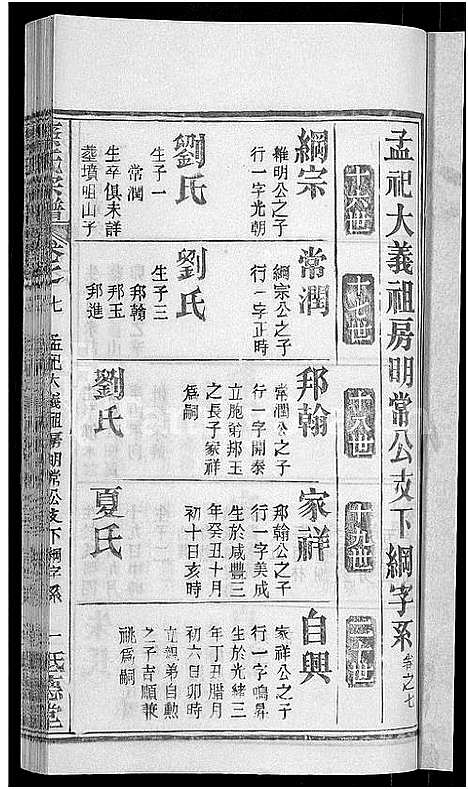 孟祀大義祖房明常公支下綱字系 卷之七
十六世
綱宗
維明公之子
行一字光朝
劉氏
生子一
常潤
生卒俱未詳
塟墳咀山子
十七世
常潤
綱宗公之子
行一字正時
劉氏
生子三
邦翰
邦玉
邦進
十八世
邦翰
常潤公之子
行一字開泰
立胞弟邦玉
之長子家祥
為嗣
劉氏
十九世
家祥
邦翰公之子
行一字美成
生於咸豐三
年癸丑十月
初十日亥時
夏氏
二十世
自興
家祥公之子
行一字鳴昇
生於光緒三
年丁丑腊月
初六日卯時
立親弟自勲
之子吉順兼
祧為嗣
宗譜 卷之七 孟祀大義祖房明常公支下綱字系 一